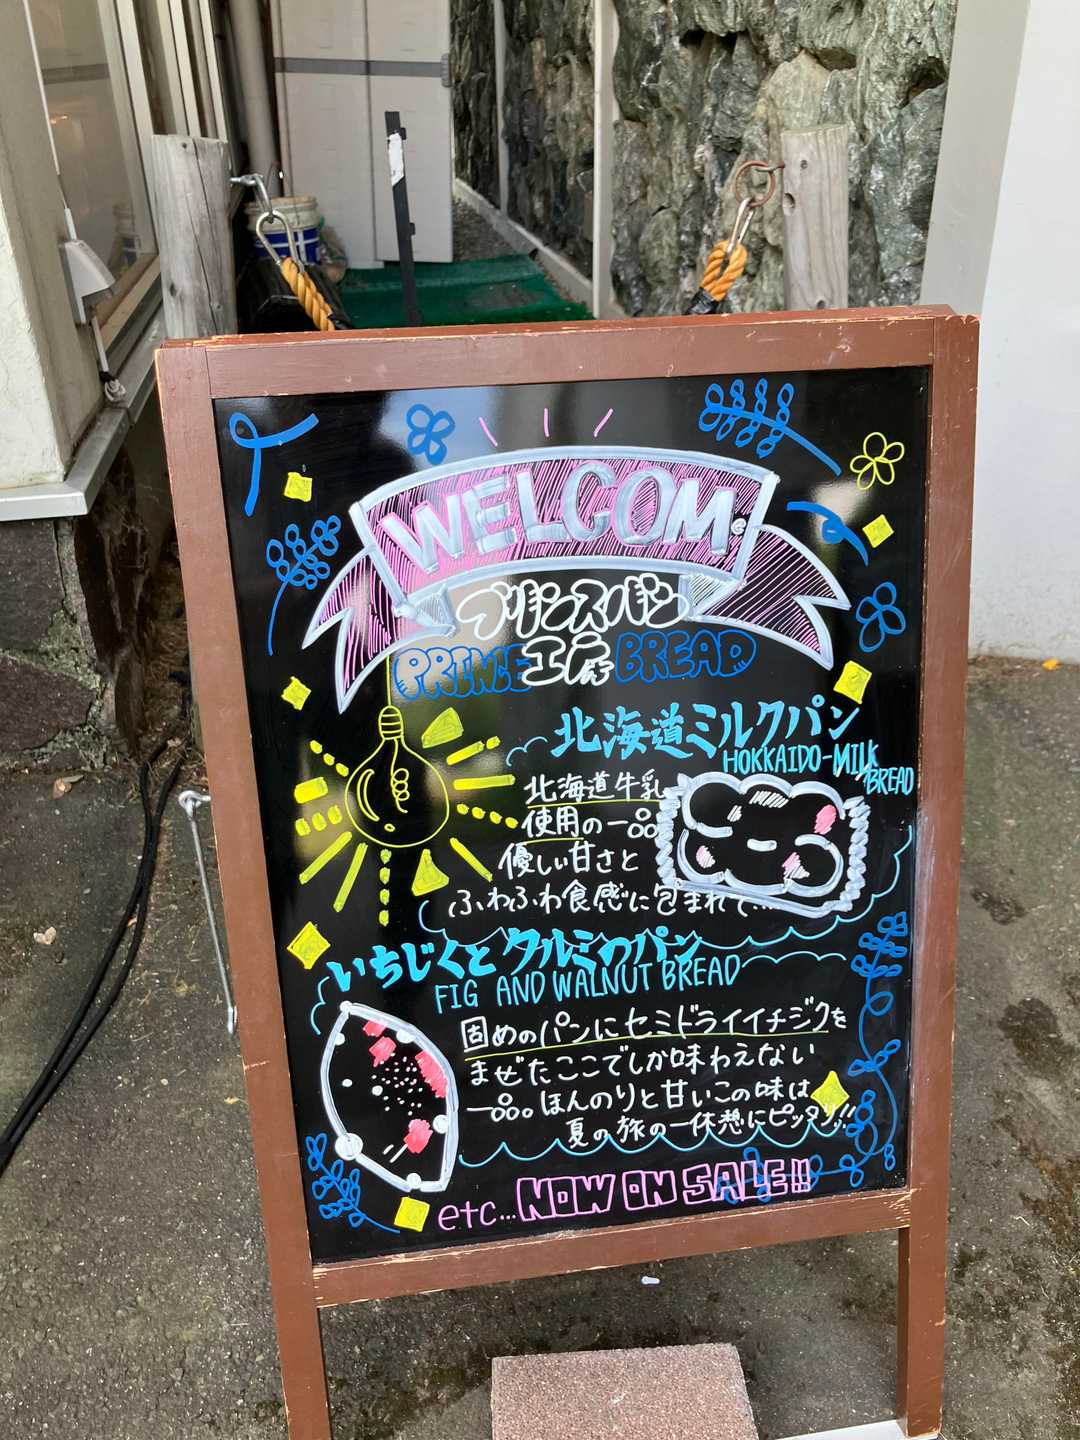 WELCOM
プリンスパン
PRINCE工房BREAD
北海道ミルクパン
HOKKAIDO-MILK
BREAD
北海道牛乳
使用の一品
優しい甘さと
ふわふわ食感に包まれて...
いちじくとクルミのパン
FIG AND WALNUT BREAD
固めのパンにセミドライイチジクを
まぜたここでしか味わえない
一品。ほんのりと甘いこの味は
夏の旅の一休憩にピッタリ!!
etc...NOW ON SALE!!